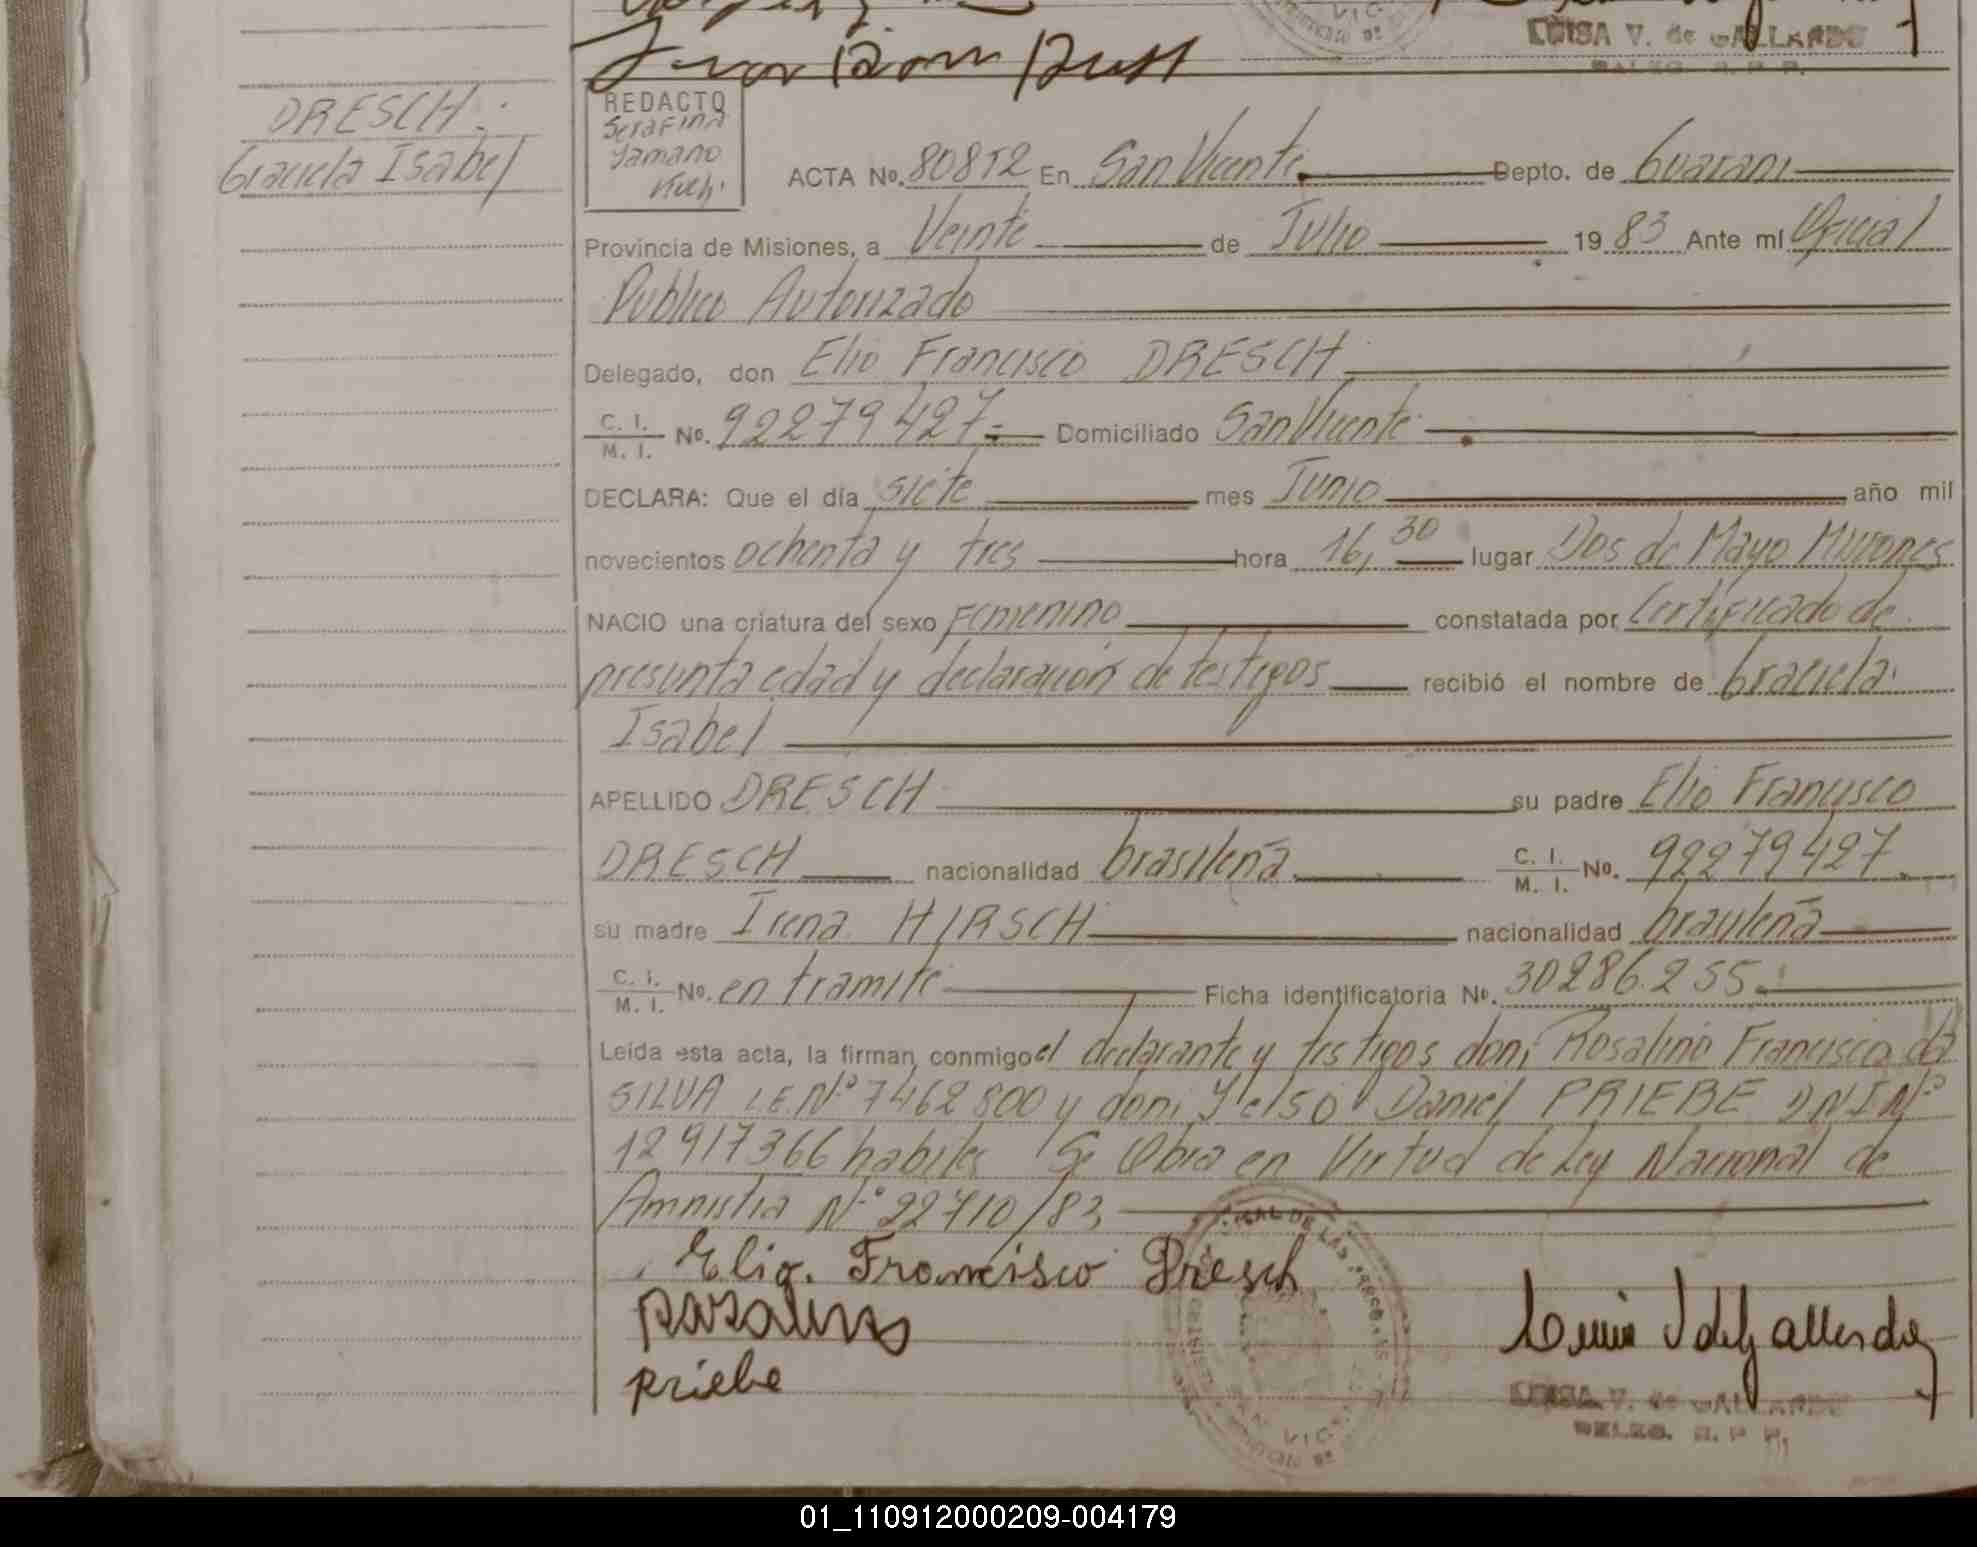 LUISA V. de GALLARDO
DELEG. R. P. P.
DRESCH:
Graciela Isabel
REDACTO
Serafina
Yamano
ACTA No. 80852 En San Vicente. Depto. de Guarani
Provincia de Misiones, a Veinte de Julio 19 83 Ante mi Oficial
Publico Autorizado
Delegado, don Elio Francisco DRESCH
C. I. M. I. No. 92279427.- Domiciliado San Vicente
DECLARA: Que el día siete mes Junio año mil
novecientos ochenta y tres hora 16,30 lugar Dos de Mayo Misiones
NACIO una criatura del sexo Femenino constatada por Certificado de
presunta edad y declaración de testigos recibió el nombre de Graciela
Isabel
APELLIDO DRESCH su padre Elio Francisco
DRESCH nacionalidad brasileña. C. I. M. I. No. 92279427.
su madre Irena HIRSCH nacionalidad brasileña
C. I. M. I. No. en tramite Ficha identificatoria No. 30286.255.
Leída esta acta, la firman conmigo el declarante y testigos don, Rosalino Francisco da
SILVA L.E. Nº 7462800 y don, Yelso Daniel PRIEBE DNI Nº
12917366 habiles Se Obra en Virtud de Ley Nacional de
Amnistia Nº 22710/83
Elio. Francisco Dresch
Rosalino
Priebe
LUISA V. de GALLARDO
DELEG. R. P. P.
01_110912000209-004179